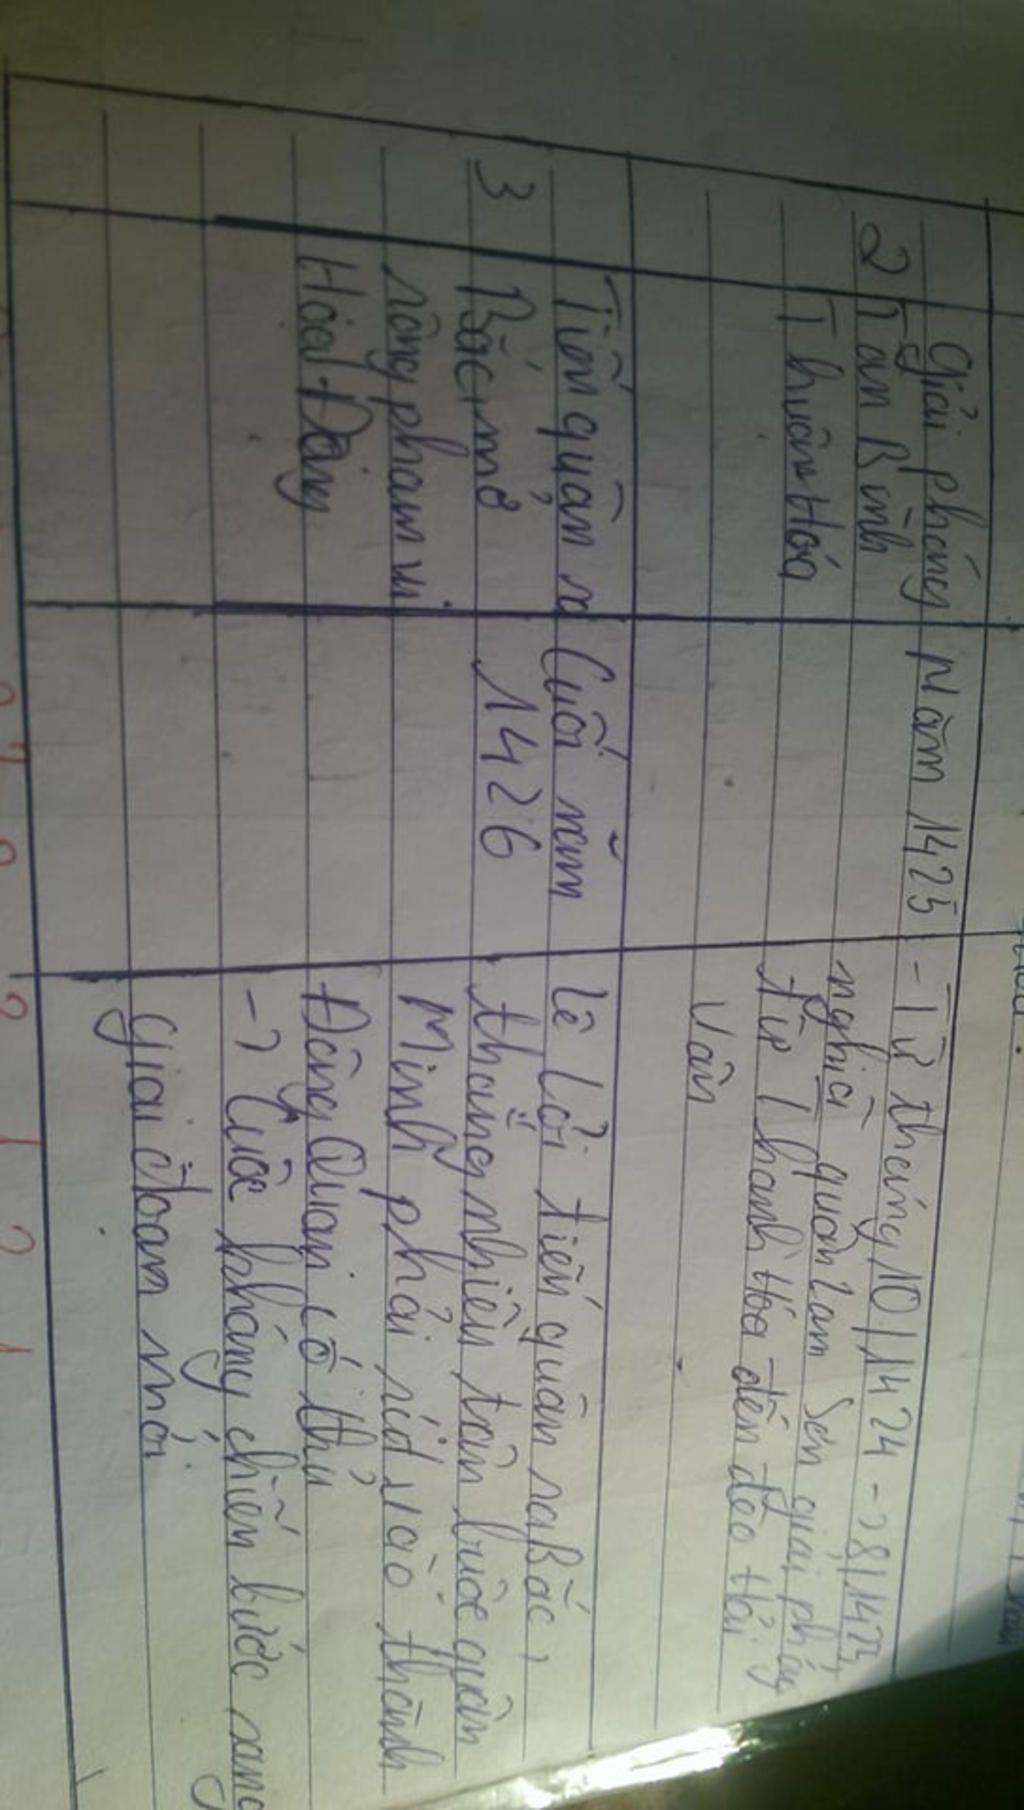 Giải phóng Năm 1425 - Từ tháng 10/1424 -> 8/1425,
2 Tân Bình nghĩa quân Lam Sơn giải phóng
Thuận Hóa từ Thanh Hóa đến đèo Hải
Vân
Tiến quân ra Cuối năm Lê Lợi tiến quân ra Bắc,
3 Bắc, mở 1426 thắng nhiều trận buộc quân
rộng phạm vi Minh phải rút vào thành
Hoạt Động Đông Quan cố thủ
-> Cuộc kháng chiến bước sang
giai đoạn mới.